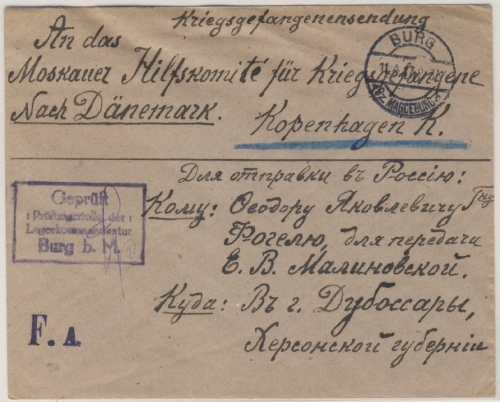 Kriegsgefangenensendung
An das
Moskauer Hilfskomité für Kriegsgefangene
Nach Dänemark.
Kopenhagen K.
BURG
(BZ. MAGDEBURG)
Для отправки въ Россію:
Geprüft
Prüfungsstelle der
Lagerkommandantur
Burg b. M.
Кому: Ѳеодору Яковлевичу
Фогелю, для передачи
Е. В. Малиновской.
Куда: Въ г. Дубоссары,
Херсонской губерніи
F. A.